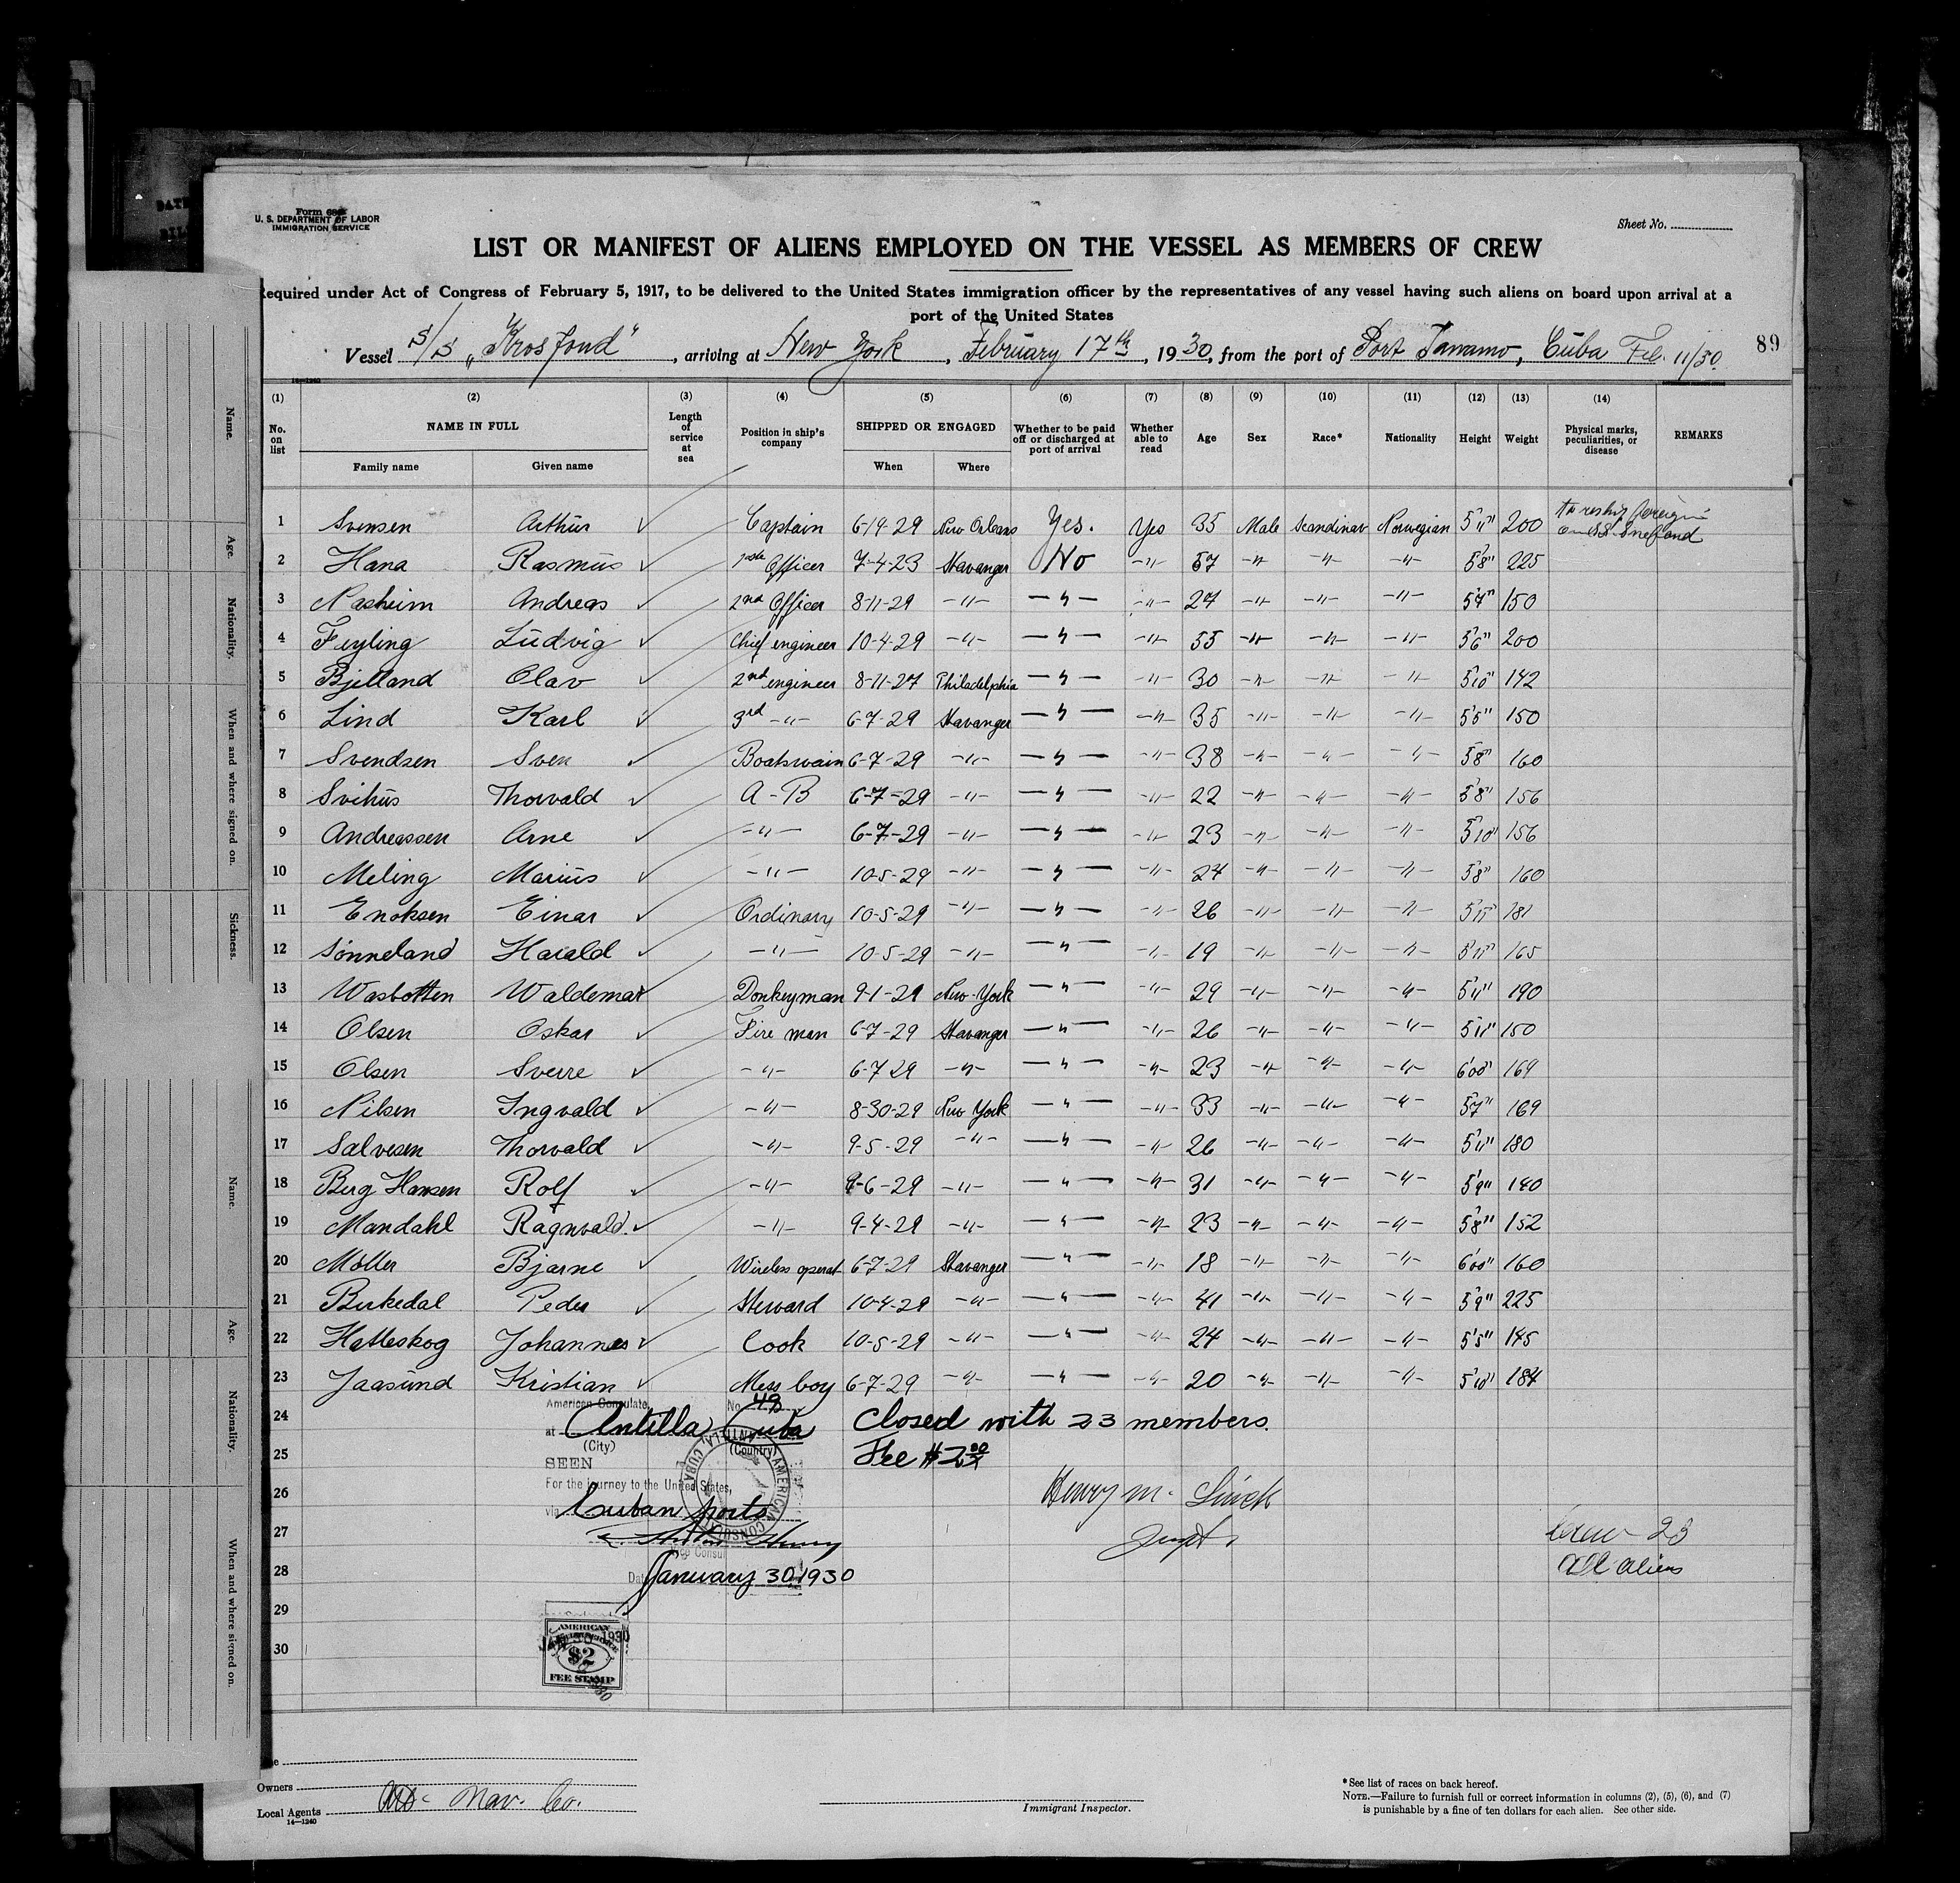 Form 689
U. S. DEPARTMENT OF LABOR
IMMIGRATION SERVICE
Sheet No.
LIST OR MANIFEST OF ALIENS EMPLOYED ON THE VESSEL AS MEMBERS OF CREW
Required under Act of Congress of February 5, 1917, to be delivered to the United States immigration officer by the representatives of any vessel having such aliens on board upon arrival at a
port of the United States
Vessel S/S „Krosfond", arriving at New York, February 17th, 1930, from the port of Port Tanamo, Cuba Feb. 11/30.
89
14—1240
(1) (2) (3) (4) (5) (6) (7) (8) (9) (10) (11) (12) (13) (14)
No. on list NAME IN FULL Family name Given name Length of service at sea Position in ship's company SHIPPED OR ENGAGED When Where Whether to be paid off or discharged at port of arrival Whether able to read Age Sex Race* Nationality Height Weight Physical marks, peculiarities, or disease REMARKS
1 Svensen Arthur ✓ Captain 6-14-29 New Orleans Yes. Yes 35 Male Scandinav Norwegian 5'11" 200 to reship foreign on SS. Snefond
2 Hana Rasmus ✓ 1ste Officer 7-4-23 Stavanger No -"- 57 -"- -"- -"- 5'8" 225
3 Nasheim Andreas ✓ 2nd Officer 8-11-29 -"- -"- -"- 27 -"- -"- -"- 5'7" 150
4 Feyling Ludvig ✓ Chief engineer 10-4-29 -"- -"- -"- 55 -"- -"- -"- 5'6" 200
5 Bjelland Olav ✓ 2nd engineer 8-11-27 Philadelphia -"- -"- 30 -"- -"- -"- 5'10" 142
6 Lind Karl ✓ 3rd -"- 6-7-29 Stavanger -"- -"- 35 -"- -"- -"- 5'5" 150
7 Svendsen Sven ✓ Boatswain 6-7-29 -"- -"- -"- 38 -"- -"- -"- 5'8" 160
8 Svihus Thorvald ✓ A-B 6-7-29 -"- -"- -"- 22 -"- -"- -"- 5'8" 156
9 Andreassen Arne ✓ -"- 6-7-29 -"- -"- -"- 23 -"- -"- -"- 5'10" 156
10 Meling Marius ✓ -"- 10-5-29 -"- -"- -"- 24 -"- -"- -"- 5'8" 160
11 Enoksen Einar ✓ Ordinary 10-5-29 -"- -"- -"- 26 -"- -"- -"- 5'11" 181
12 Sønneland Harald ✓ -"- 10-5-29 -"- -"- -"- 19 -"- -"- -"- 5'11" 165
13 Wasbotten Waldemar ✓ Donkeyman 9-1-29 New-York -"- -"- 29 -"- -"- -"- 5'11" 190
14 Olsen Oskar ✓ Fire man 6-7-29 Stavanger -"- -"- 26 -"- -"- -"- 5'11" 150
15 Olsen Sverre ✓ -"- 6-7 29 -"- -"- -"- 23 -"- -"- -"- 6'00" 169
16 Nilsen Ingvald ✓ -"- 8-30-29 New York -"- -"- 33 -"- -"- -"- 5'7" 169
17 Salvesen Thorvald ✓ -"- 9-5-29 -"- -"- -"- 26 -"- -"- -"- 5'11" 180
18 Berg Hansen Rolf ✓ -"- 9-6-29 -"- -"- -"- 31 -"- -"- -"- 5'9" 140
19 Mandahl Ragnvald. ✓ -"- 9-4-29 -"- -"- -"- 23 -"- -"- -"- 5'8" 152
20 Möller Bjarne ✓ Wireless operat 6-7-29 Stavanger -"- -"- 18 -"- -"- -"- 6'00" 160
21 Birkedal Peder ✓ Steward 10-4-29 -"- -"- -"- 41 -"- -"- -"- 5'9" 225
22 Hatleskog Johannes ✓ Cook 10-5-29 -"- -"- -"- 24 -"- -"- -"- 5'5" 145
23 Jaasund Kristian ✓ Mess boy 6-7-29 -"- -"- -"- 20 -"- -"- -"- 5'10" 184
American Consulate, No. 49
24 at Antilla Cuba Closed with 23 members.
(City) (Country)
25 SEEN Fee $2.00
For the journey to the United States,
26 via Cuban ports Henry M.
27 Vice Consul Supt. Crew 23
28 Date January 30, 1930 All aliens
29
30
AMERICAN CONSULATE ANTILLA, CUBA
AMERICAN
JAN 30 1930
$2
FEE STAMP
Owners
Local Agents Nav. Co.
14—1240
Immigrant Inspector.
*See list of races on back hereof.
NOTE.—Failure to furnish full or correct information in columns (2), (5), (6), and (7)
is punishable by a fine of ten dollars for each alien. See other side.
Name.
Age.
Nationality.
When and where signed on.
Sickness.
Name.
Age.
Nationality.
When and where signed on.